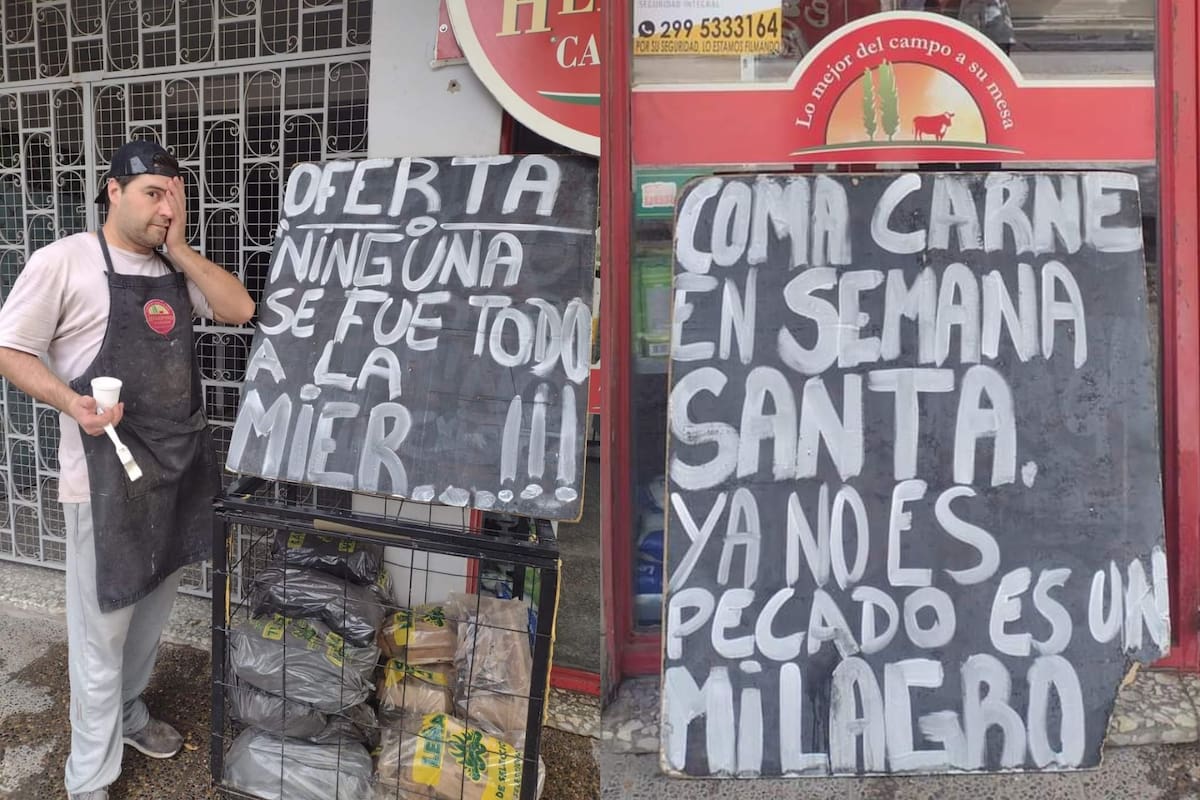 OFERTA
NINGUNA
SE FUE TODO
A LA
MIER....... !!!
LEÑA
SEGURIDAD INTEGRAL
299 5333164
POR SU SEGURIDAD, LO ESTAMOS FILMANDO
Lo mejor del campo a su mesa
COMA CARNE
EN SEMANA
SANTA.
YA NO ES
PECADO ES UN
MILAGRO